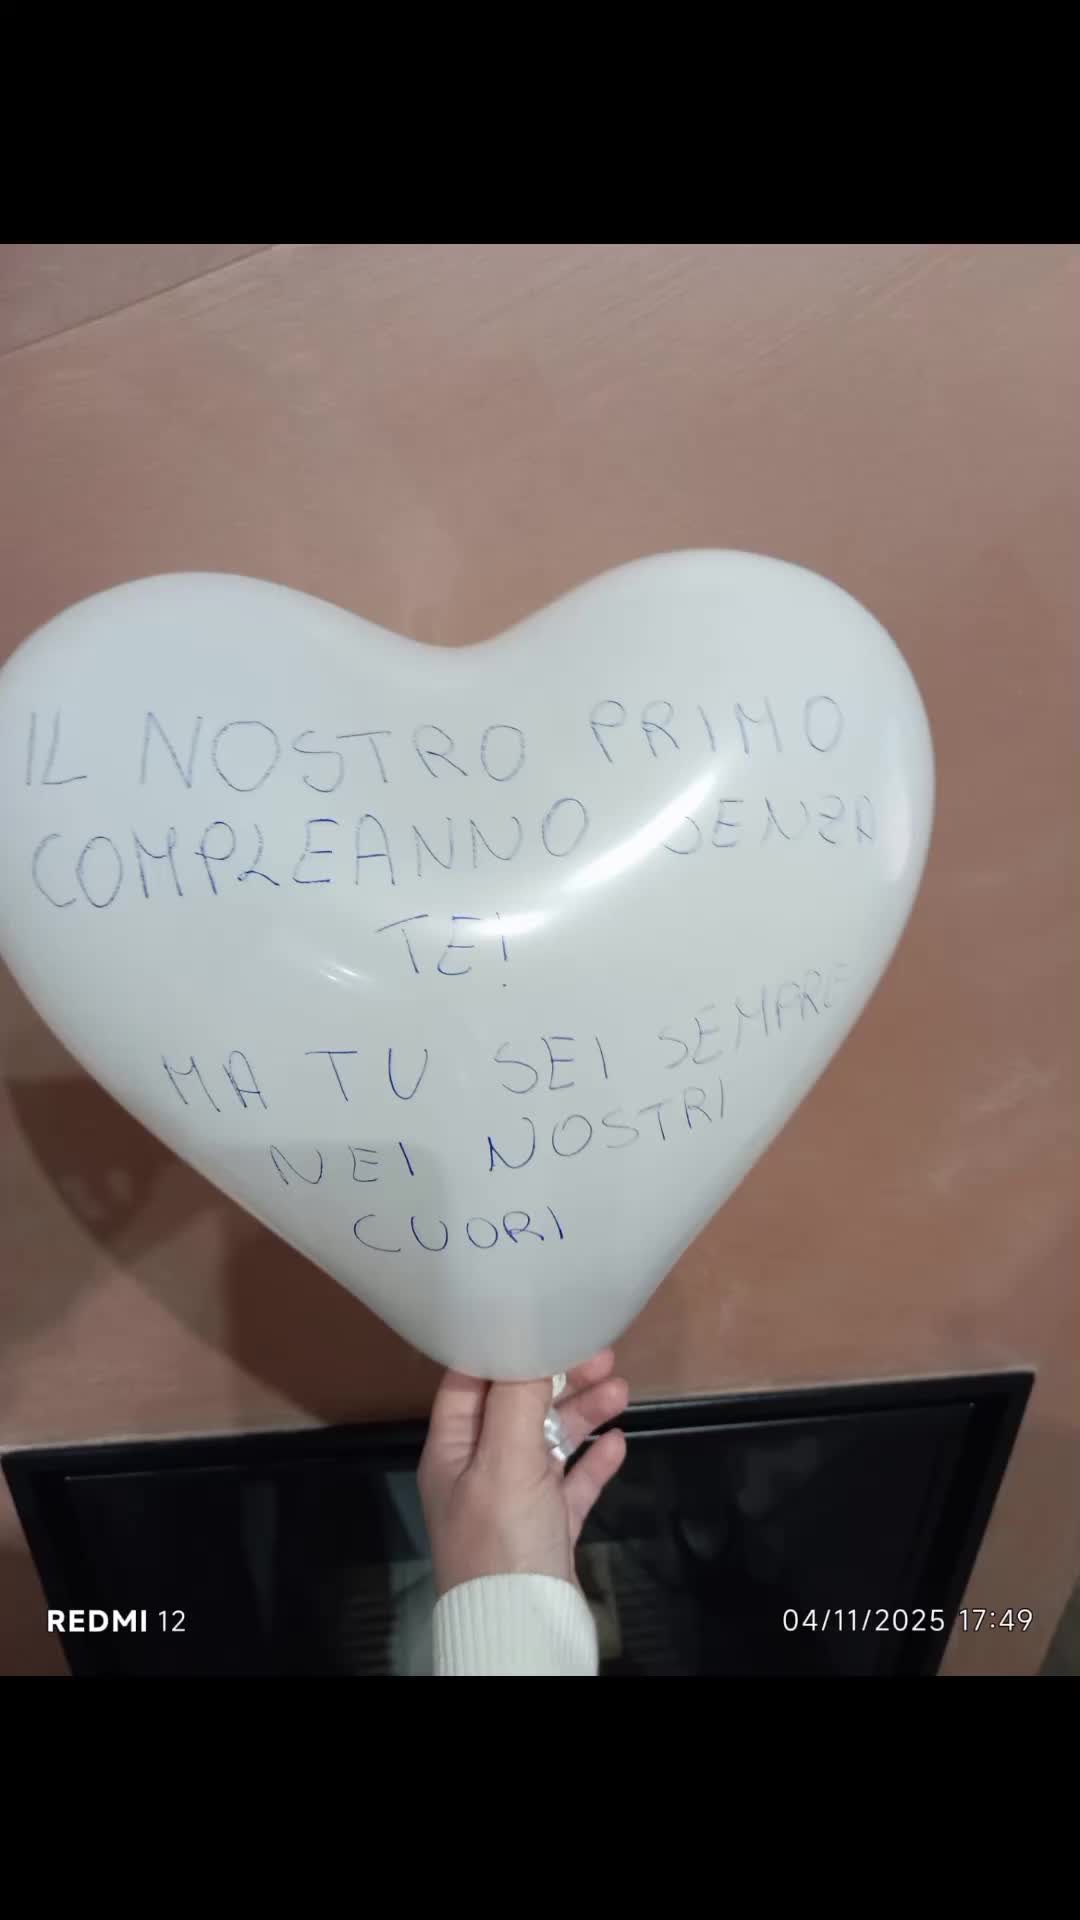 IL NOSTRO PRIMO
COMPLEANNO SENZA
TE!
MA TU SEI SEMPRE
NEI NOSTRI
CUORI
REDMI 12
04/11/2025 17:49